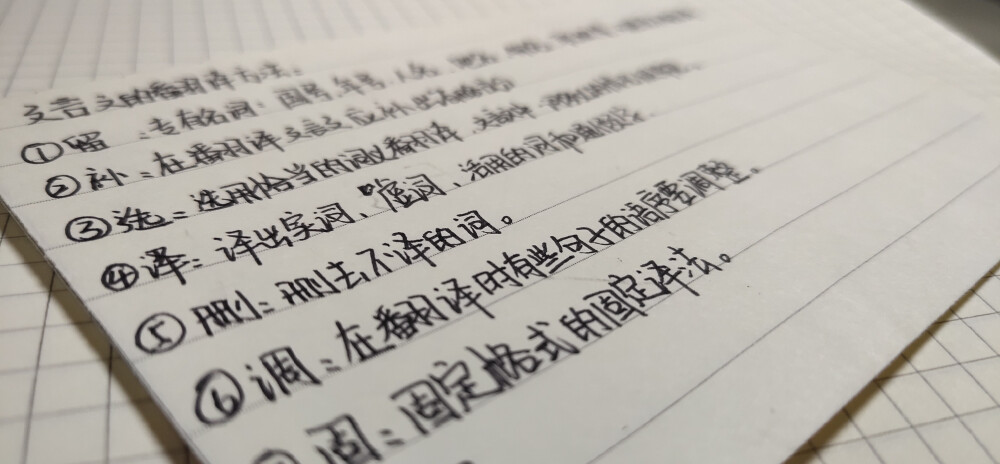 文言文的翻译方法:
①留:专有名词:国号、年号、人名、
②补:在翻译文言文应补出省略的
③选:选用恰当的词义翻译
④译:译出实词、虚词、活用的词和
⑤删:删去不译的词。
⑥调:在翻译时有些句子的语序要调整。
固:固定格式的固定译法。